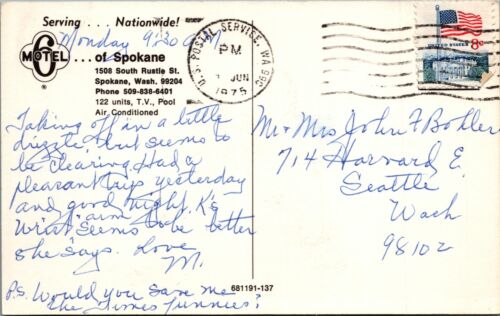 Serving ... Nationwide!
Monday 9:30 a.m.
MOTEL 6 ... of Spokane
1508 South Rustle St.
Spokane, Wash. 99204
Phone 509-838-6401
122 units, T.V., Pool
Air Conditioned
U.S. POSTAL SERVICE, WA 992
PM
JUN
1975
UNITED STATES 8c
Taking off in a little
drizzle, but seems to
be clearing. Had a
pleasant trip yesterday
and good night. K's
arm
wrist seems to be better
she says. Love
M.
P.S. Would you save me
the Times funnies?
Mr & Mrs John F Bohler
714 Harvard E.
Seattle
Wash
98102
681191-137